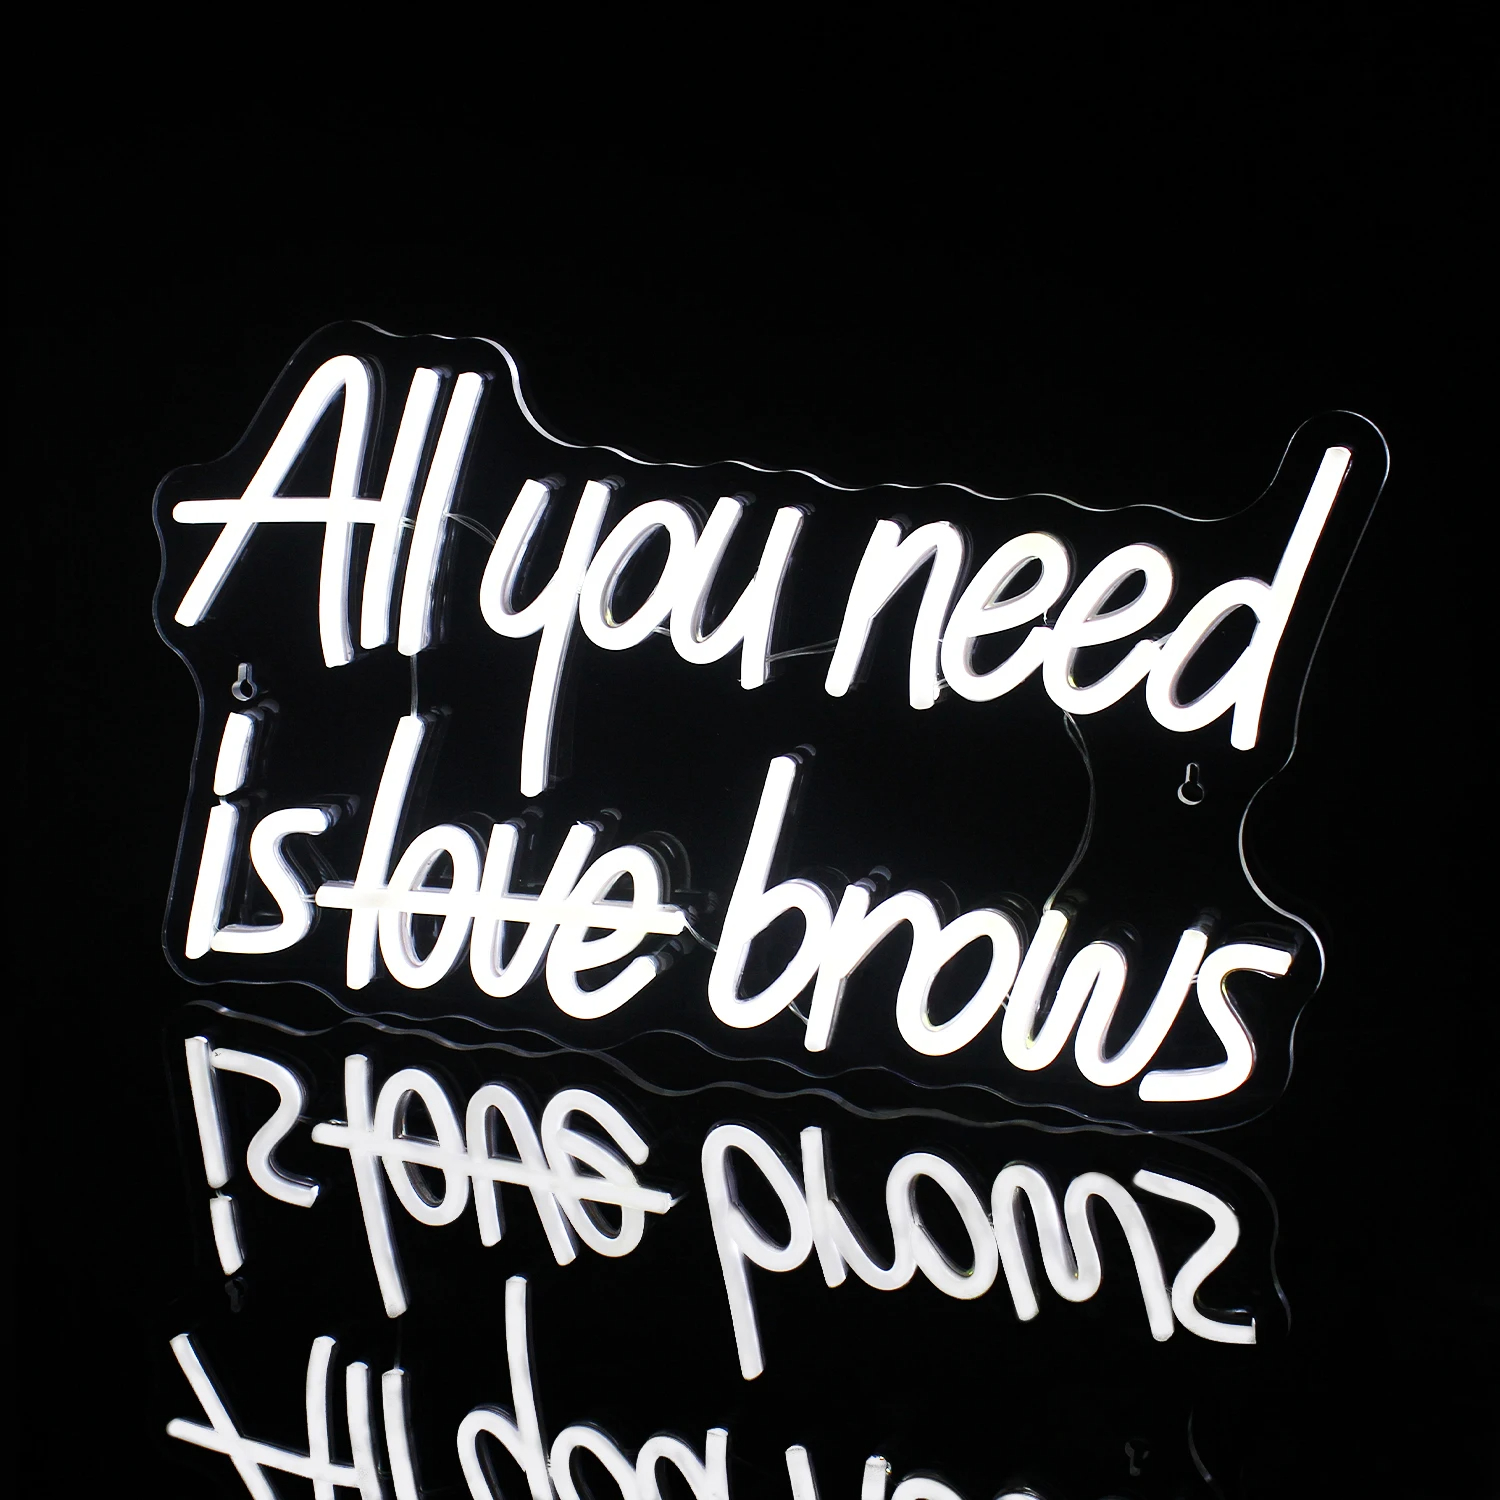 All you need
is ~~love~~ brows